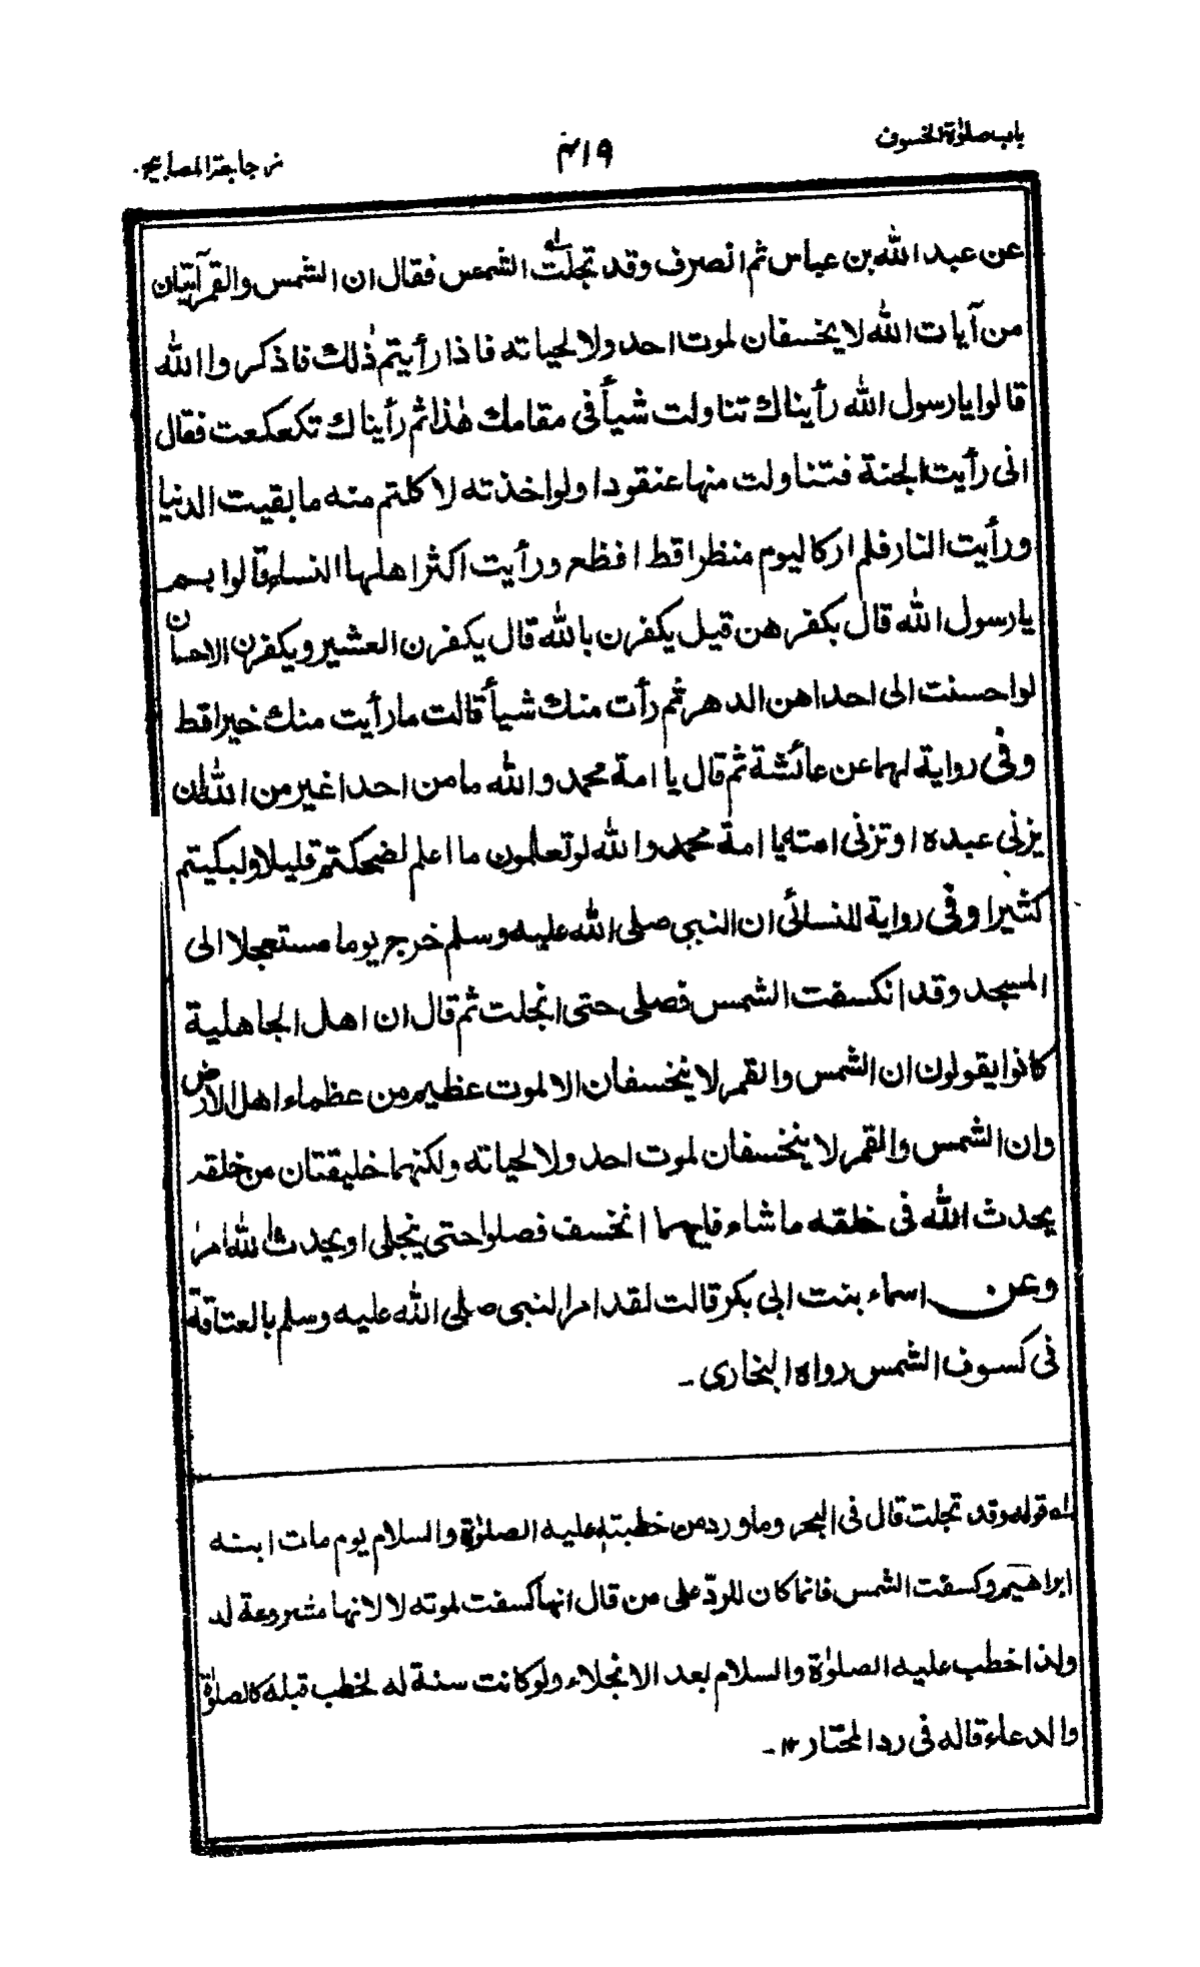 باب صلوٰة الخسوف
٤١٩
زجاجة المصابيح.
عن عبد الله بن عباس ثم انصرف وقد تجلت له الشمس فقال ان الشمس والقمر آيتان
من آيات الله لا يخسفان لموت احد ولا لحياته فاذا رأيتم ذٰلك فاذكروا الله
قالوا يا رسول الله رأيناك تناولت شيأ فى مقامك هٰذا ثم رأيناك تكعكعت فقال
انى رأيت الجنة فتناولت منها عنقودا ولو اخذته لاكلتم منه ما بقيت الدنيا
ورأيت النار فلم ار كاليوم منظرا قط افظع ورأيت اكثر اهلها النساء قالوا بم
يا رسول الله قال بكفرهن قيل يكفرن بالله قال يكفرن العشير ويكفرن الاحسان
لو احسنت الى احداهن الدهر ثم رأت منك شيأ قالت ما رأيت منك خيرا قط
وفى رواية لهما عن عائشة ثم قال يا امة محمد والله ما من احد اغير من الله ان
يزنى عبده او تزنى امته يا امة محمد والله لو تعلمون ما اعلم لضحكتم قليلا ولبكيتم
كثيرا وفى رواية للنسائى ان النبى صلى الله عليه وسلم خرج يوما مستعجلا الى
المسجد وقد انكسفت الشمس فصلى حتى انجلت ثم قال ان اهل الجاهلية
كانوا يقولون ان الشمس والقمر لا ينخسفان الا لموت عظيم من عظماء اهل الارض
وان الشمس والقمر لا ينخسفان لموت احد ولا لحياته ولكنهما خليقتان من خلقه
يحدث الله فى خلقه ما شاء فايهما انخسف فصلوا حتى ينجلى او يحدث الله امرا
وعن اسماء بنت ابى بكر قالت لقد امر النبى صلى الله عليه وسلم بالعتاقة
فى كسوف الشمس رواه البخارى -
له قوله وقد تجلت قال فى البحر وما ورد من خطبته عليه الصلوٰة والسلام يوم مات ابنه
ابراهيم وكسفت الشمس فانما كان للردّ على من قال انها كسفت لموته لا لانها مشروعة له
ولذا خطب عليه الصلوٰة والسلام بعد الانجلاء ولو كانت سنة له لخطب قبله كالصلوٰة
والدعاء قاله فى رد المحتار ١٢-